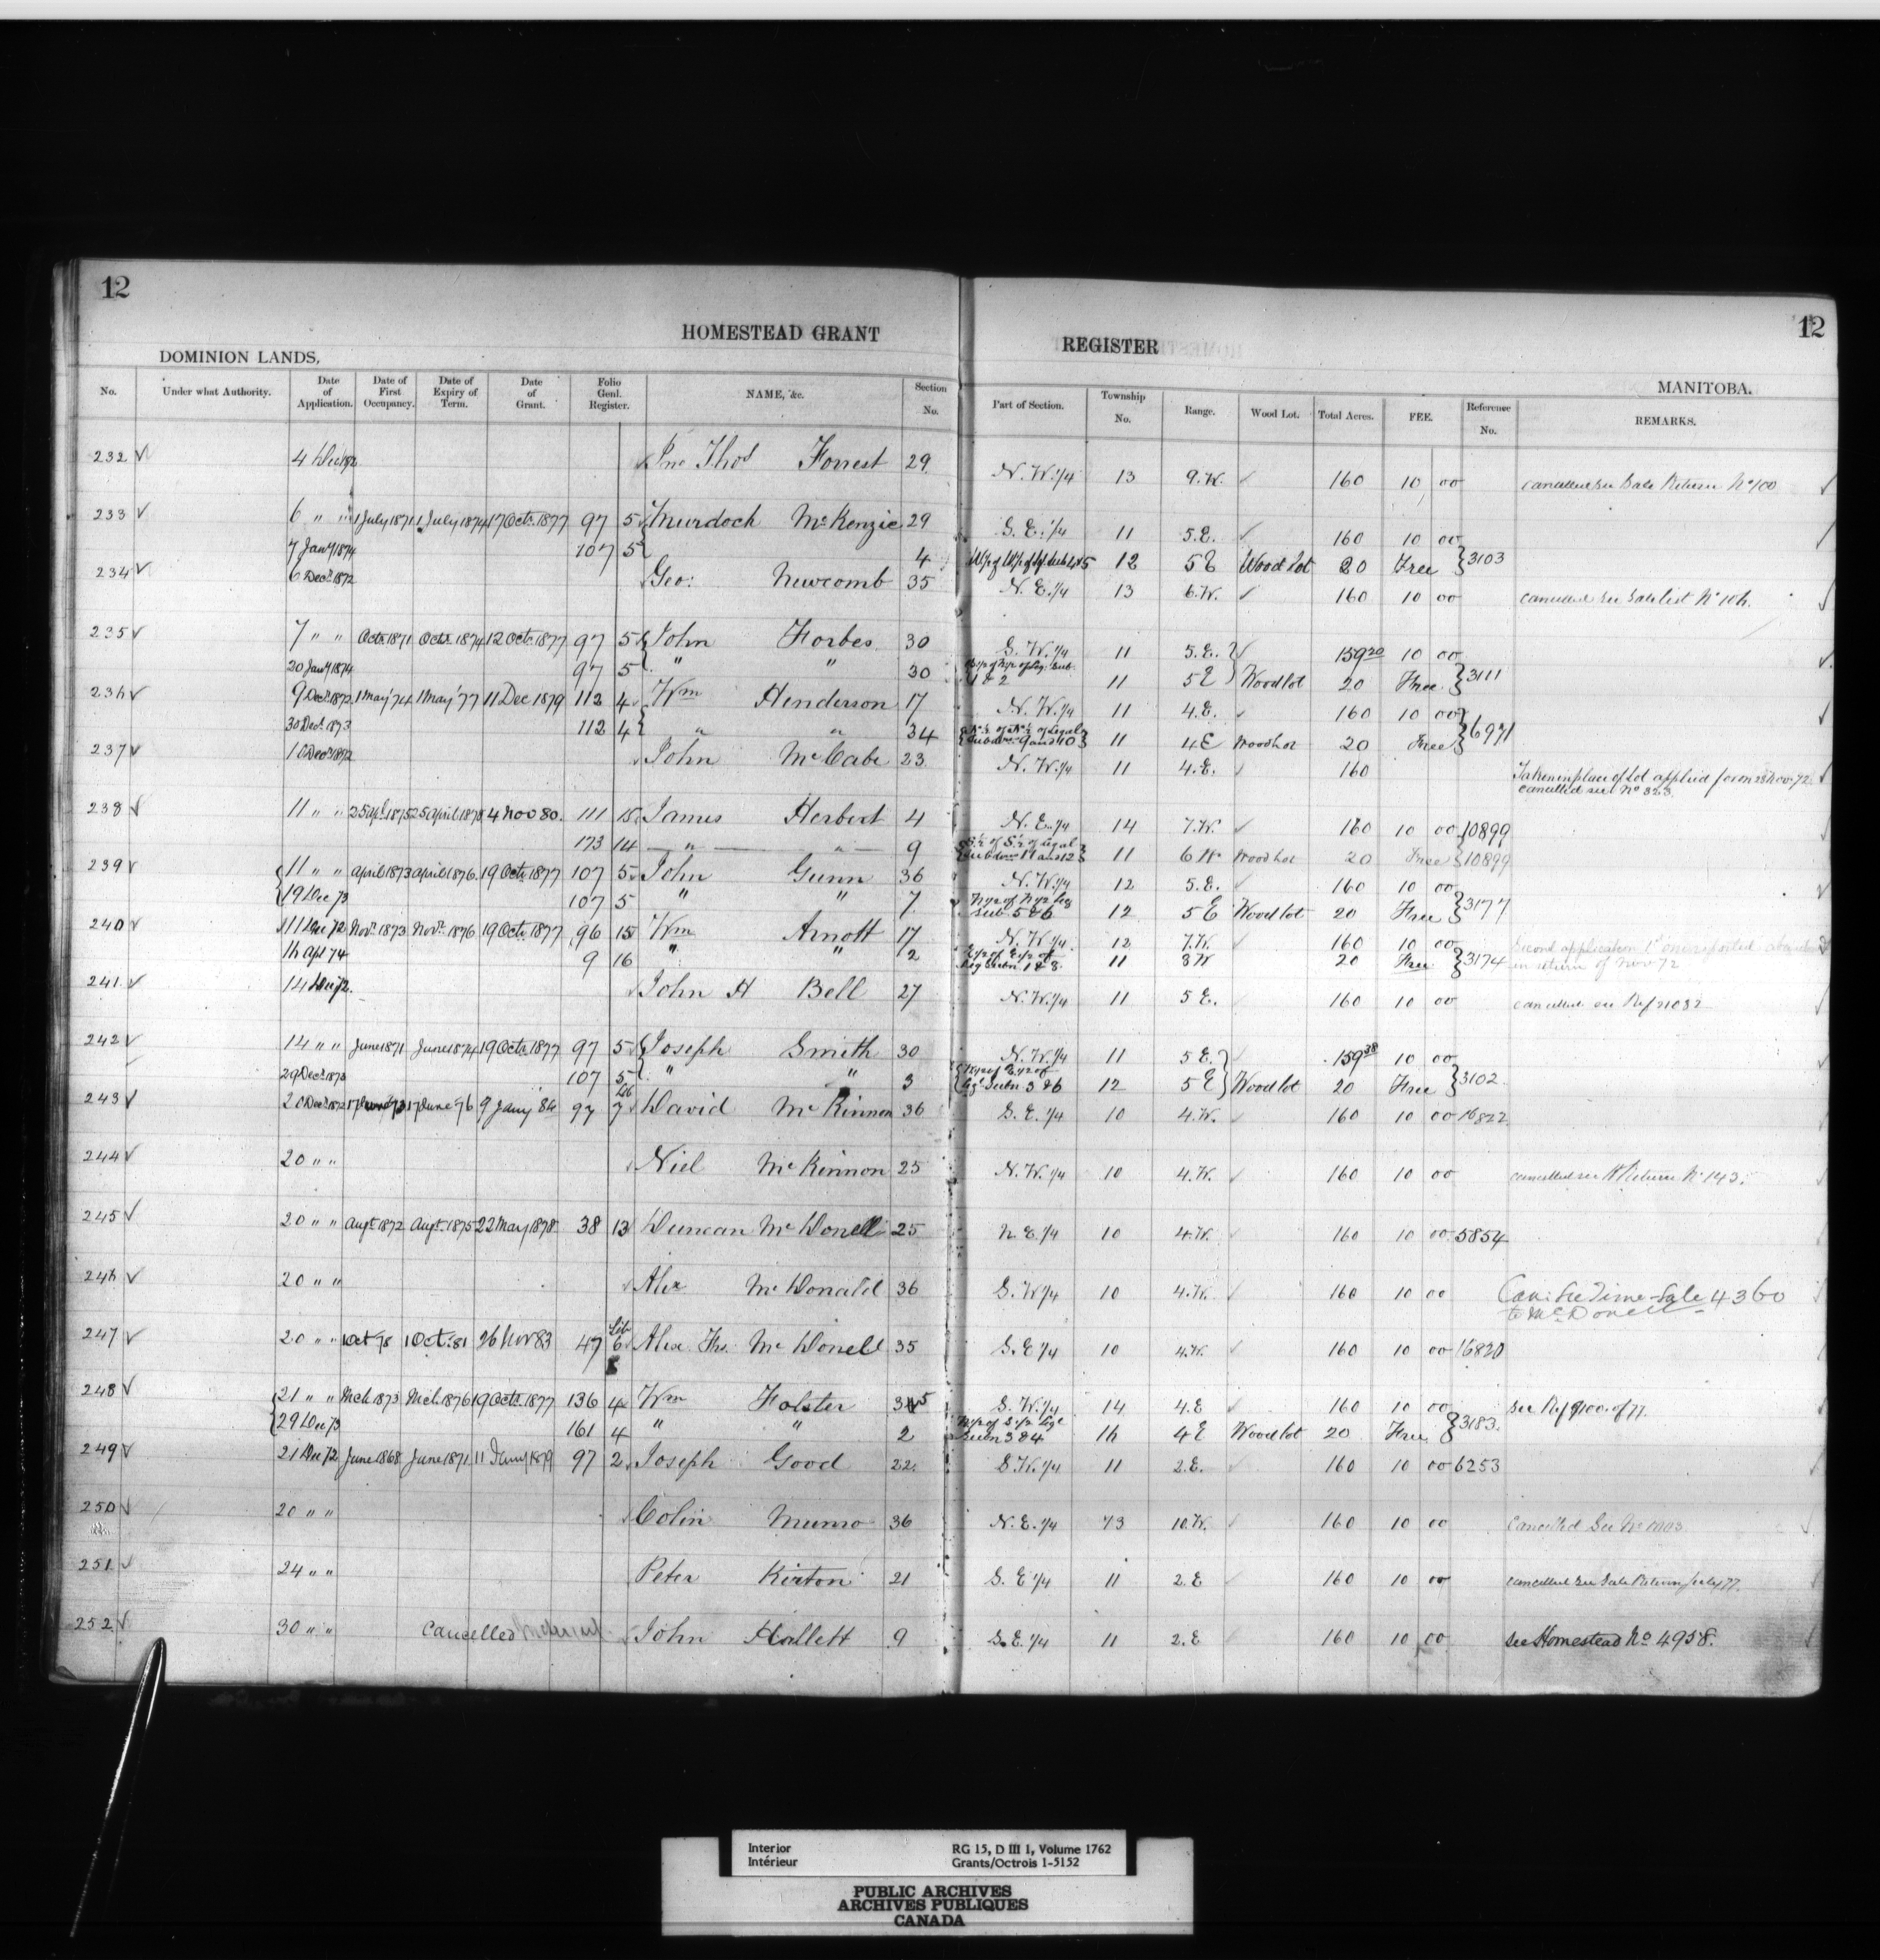 12
12
HOMESTEAD GRANT
REGISTER
DOMINION LANDS,
MANITOBA.
No. Under what Authority. Date of Application. Date of First Occupancy. Date of Expiry of Term. Date of Grant. Folio Genl. Register. NAME, &c. Section No. Part of Section. Township No. Range. Wood Lot. Total Acres. FEE. Reference No. REMARKS.
232 4 Dec 72 Jno Thos Forrest 29 N.W. 1/4 13 9.W. 160 10 00 cancelled see Sale Return No 100
233 6 " " 1 July 1871 1 July 1874 17 Octr. 1877 97 5 Murdoch McKenzie 29 S.E. 1/4 11 5.E. 160 10 00
7 Jany 1874 107 5 4 12 5 E Wood Lot 20 Free 3103
234 6 Decr. 1872 Geo: Newcomb 35 N.E. 1/4 13 6.W. 160 10 00 cancelled see Sale list No 10h.
235 7 " " Octr. 1871 Octr. 1874 12 Octr. 1877 97 5 John Forbes 30 S.W. 1/4 11 5.E. 159 20 10 00
20 Jany 1874 97 5 " " 30 1 & 2 11 5 E Woodlot 20 Free 3111
23h 9 Decr. 1872 1 May '74 1 May '77 11 Dec 1879 112 4 Wm Henderson 17 N.W. 1/4 11 4.E. 160 10 00
30 Decr. 1873 112 4 " " 34 N 1/2 of N 1/2 of Legal Subdns 9 and 10 11 4 E Woodlot 20 Free 6971
237 10 Decr 1872 John McCabe 23 N.W. 1/4 11 4.E. 160 Taken in place of Lot applied for on 28 Nov. 72.
cancelled see No 323
238 11 " " 25 Apl. 1875 25 April 1878 4 Nov 80. 111 15 James Herbert 4 N.E. 1/4 14 7.W. 160 10 00 10899
173 14 " " 9 S 1/2 of S 1/2 of Legal Subdns 11 and 12 11 6 W Woodlot 20 Free 10899
239 11 " " April 1873 April 1876 19 Octr. 1877 107 5 John Gunn 36 N.W. 1/4 12 5.E. 160 10 00
19 Dec 73 107 5 " " 7 N 1/2 of N 1/2 Leg Sub 5 & 6 12 5 E Woodlot 20 Free 3177
240 11 Dec 72 Novr. 1873 Novr. 1876 19 Octr. 1877 96 15 Wm Arnott 17 N.W. 1/4 12 7.W. 160 10 00 Second application 1st one reported
1h Apl 74 9 16 " " 2 E 1/2 of E 1/2 of Leg Subn 1 & 8 11 8 W 20 Free 3174 in return of Nov 72
241 14 Dec 72. John H Bell 27 N.W. 1/4 11 5 E. 160 10 00 cancelled see Ref 21032
242 14 " " June 1871 June 1874 19 Octr. 1877 97 5 Joseph Smith 30 N.W. 1/4 11 5 E. 159 38 10 00
29 Decr. 1873 107 5 " " 3 W 1/2 of E 1/2 of Lgl Subn 3 & 6 12 5 E Woodlot 20 Free 3102
243 20 Decr. 1872 17 June 73 17 June 76 9 Jany 84 97 Lib 7 David McKinnon 36 S.E. 1/4 10 4.W. 160 10 00 16822
244 20 " " Niel McKinnon 25 N.W. 1/4 10 4.W. 160 10 00 cancelled see H Return No 143.
245 20 " " Augt. 1872 Augt. 1875 22 May 1878 38 13 Duncan McDonell 25 N.E. 1/4 10 4.W. 160 10 00 5854
24h 20 " " Alex McDonald 36 S.W 1/4 10 4.W. 160 10 00 Can: See Time Sale 4360
to McDonell
247 20 " " 1 Oct 78 1 Oct. 81 26 Nov 83 47 Lib 6 Alex. Ths. McDonell 35 S.E 1/4 10 4.W. 160 10 00 16820
248 21 " " Mch 1873 Mch. 1876 19 Octr. 1877 136 4 Wm Folster 35 S.W. 1/4 14 4.E 160 10 00 see Ref 9100. of 77.
29 Dec 73 161 4 " " 2 N 1/2 of S 1/2 Legl Subn 3 & 4 1h 4 E Woodlot 20 Free 3183.
249 21 Dec 72 June 1868 June 1871 11 Jany 1879 97 2 Joseph Good 22. S.W. 1/4 11 2.E. 160 10 00 6253
250 20 " " Colin Munro 36 N.E. 1/4 13 10.W. 160 10 00 Cancelled See No 1003
251 24 " " Peter Kirton 21 S.E 1/4 11 2.E 160 10 00 cancelled see Sale Return July 77.
252 30 " " Cancelled John Hallett 9 S.E. 1/4 11 2.E 160 10 00 see Homestead No 4958.
Interior
Intérieur
RG 15, D III 1, Volume 1762
Grants/Octrois 1-5152
PUBLIC ARCHIVES
ARCHIVES PUBLIQUES
CANADA